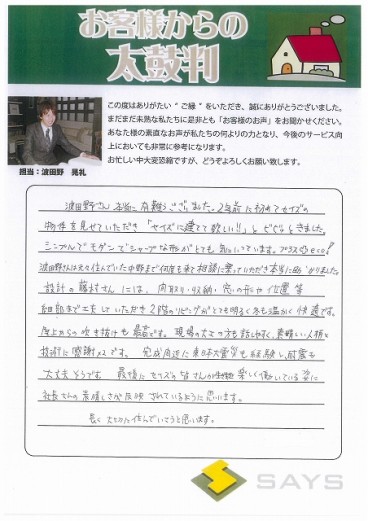 お客様からの
太鼓判
この度はありがたい“ご縁”をいただき、誠にありがとうございました。
まだまだ未熟な私たちに是非とも「お客様のお声」をお聞かせください。
あなた様の素直なお声が私たちの何よりの力となり、今後のサービス向
上においても非常に参考になります。
お忙しい中大変恐縮ですが、どうぞよろしくお願い致します。
担当：波田野 晃礼
波田野さん 本当に有難うございました。2年前に初めてセイズの
物件を見せていただき「セイズに建てて欲しい!!」とビビッときました。
シンプルでモダンでシャープな形がとても気に入っています。プラスαのeco!
波田野さんには元々住んでいた中野まで何度も来て相談に乗っていただき本当に助かりました。
設計の藤村さんには、間取り・収納・窓の形や位置等
細部まで工夫していただき2階のリビングがとても明るく冬も温かく快適です。
屋上からの吹き抜けも最高です。現場の大工の方も話しやすく、素晴しい人柄と
技術に感謝です。完成間近に東日本大震災も経験し耐震も
大丈夫そうです。最後にセイズの皆さんが楽しく働いている姿に
社長さんの素晴しさが反映されているように思います。
長く大切に住んでいこうと思います。
SAYS